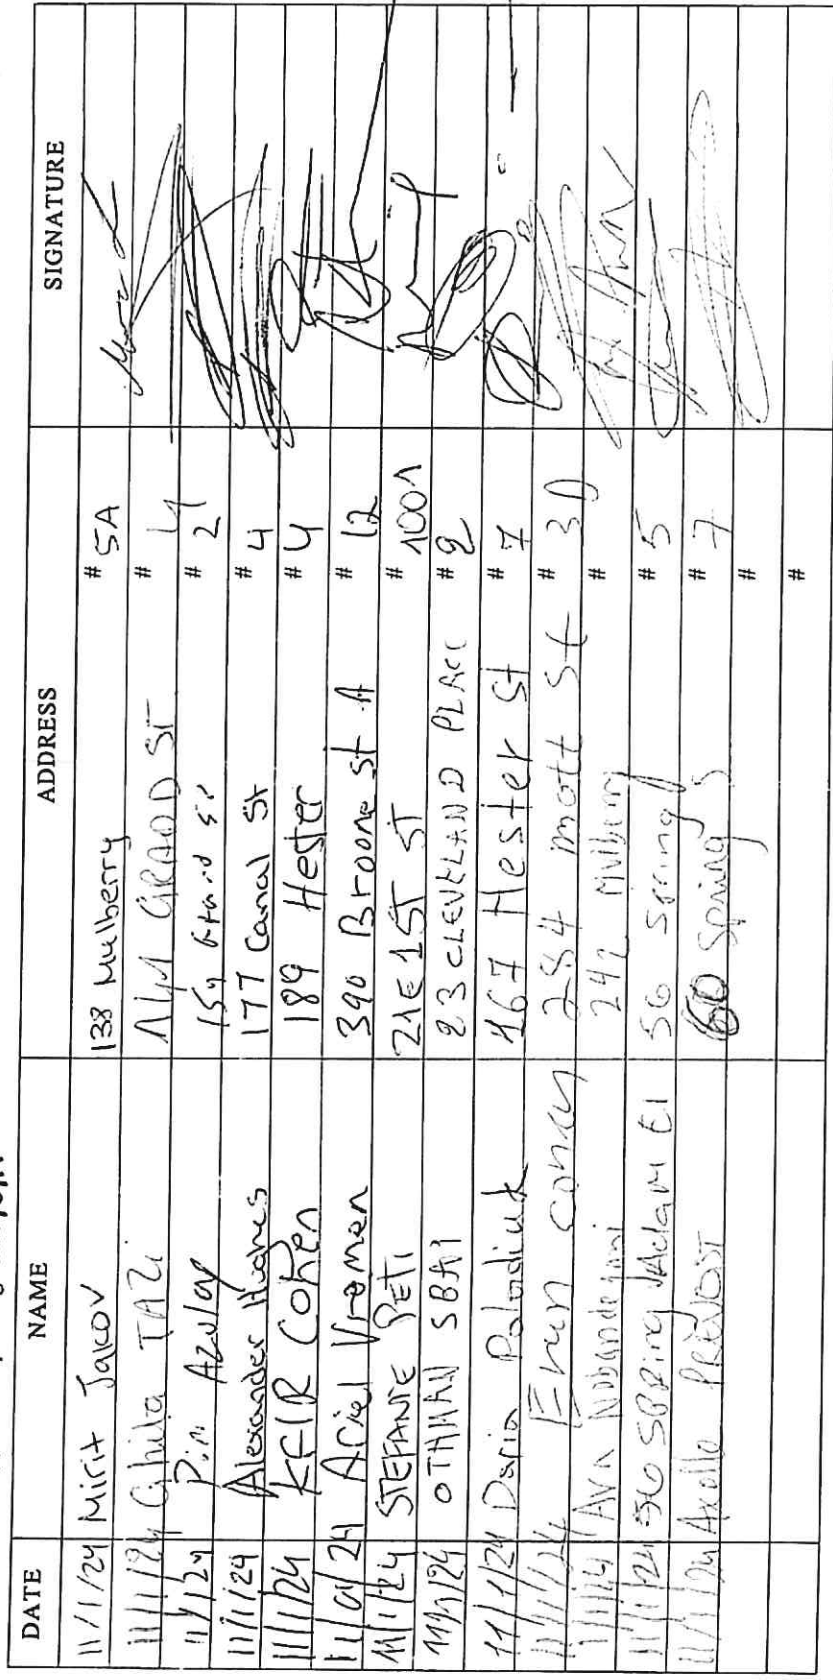 DATE NAME ADDRESS SIGNATURE
11/1/24 Mirit Jakov 138 Mulberry # 5A
11/1/24 Ghita TAZI GRAND ST # 4
11/1/24 AZulay 154 Grand St # 2
11/1/24 Alexander Hughes 177 Canal St # 4
11/1/24 KFIR Cohen 189 Hester # 4
11/01/24 Ariel Vroman 390 Broome st A # 12
11/1/24 STEFANIE PETI 21E 1ST ST # 1001
11/1/24 OTHMAN SBAI 23 CLEVELAND PLACE # 2
11/1/24 Daria Polodiuk 167 Hester St # 7
11/1/24 Eran conen 284 mott St # 3D
11/1/24 AVA 242 Mulberry #
11/1/24 56 SPRing Adam El 56 Spring # 5
11/1/24 Axelle PREVOST 60 Spring S # 7
#
#